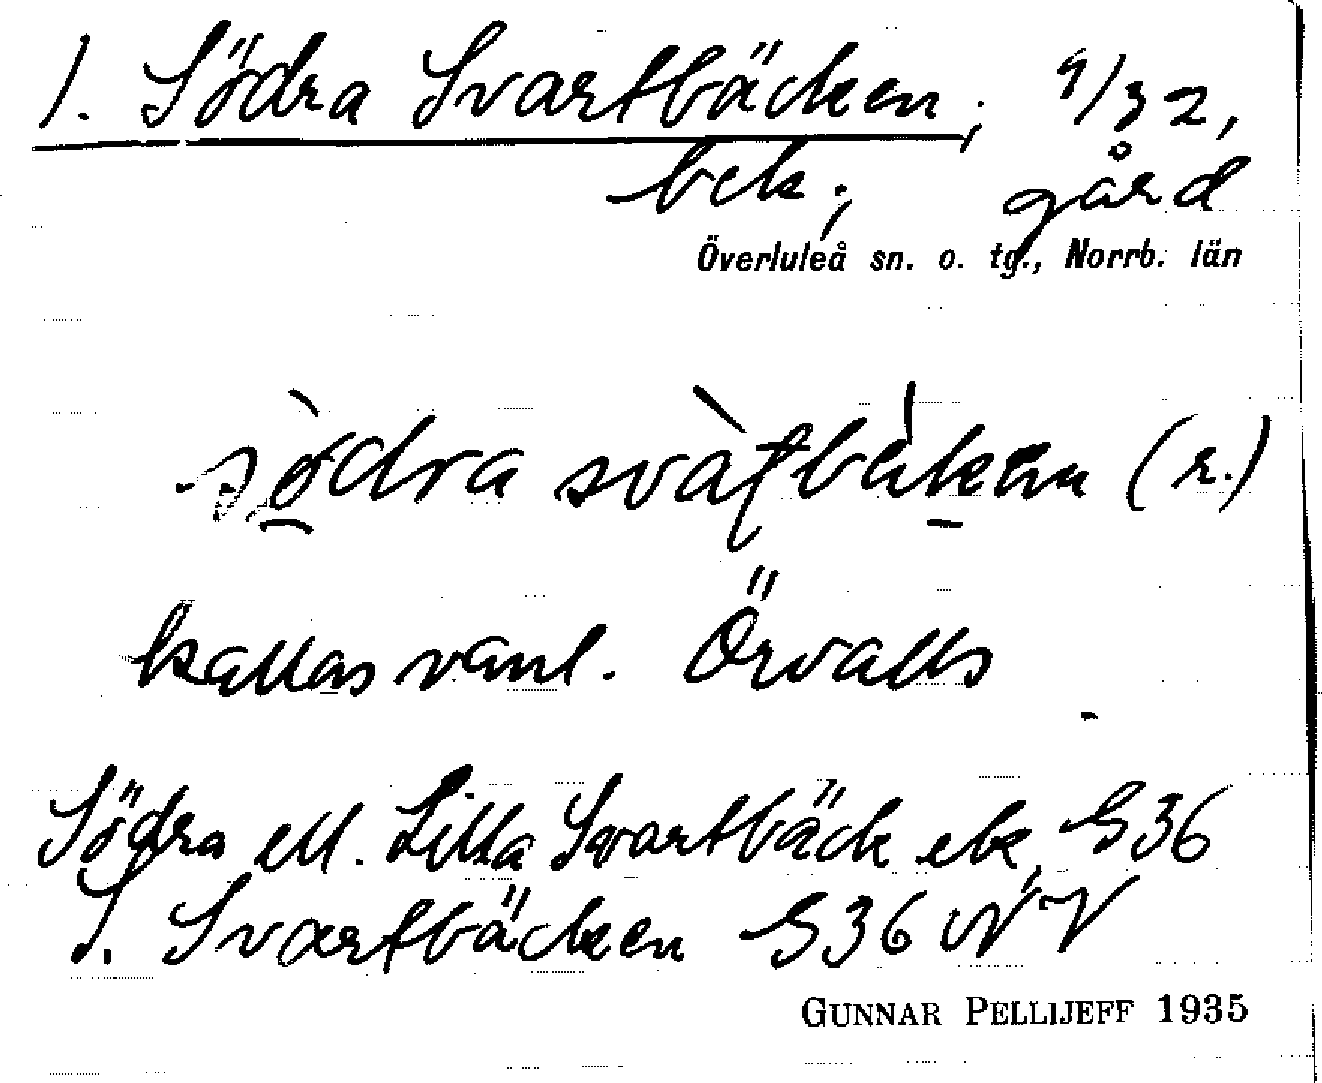 1. Södra Svartbäcken, 9/32,
bck; gård
Överluleå sn. o. tg., Norrb. län
södra (r.)
kallas vanl. Örvalls
Södra ell. Lilla Svartbäck ek, S36
S. Svartbäcken S36 NV
GUNNAR PELLIJEFF 1935